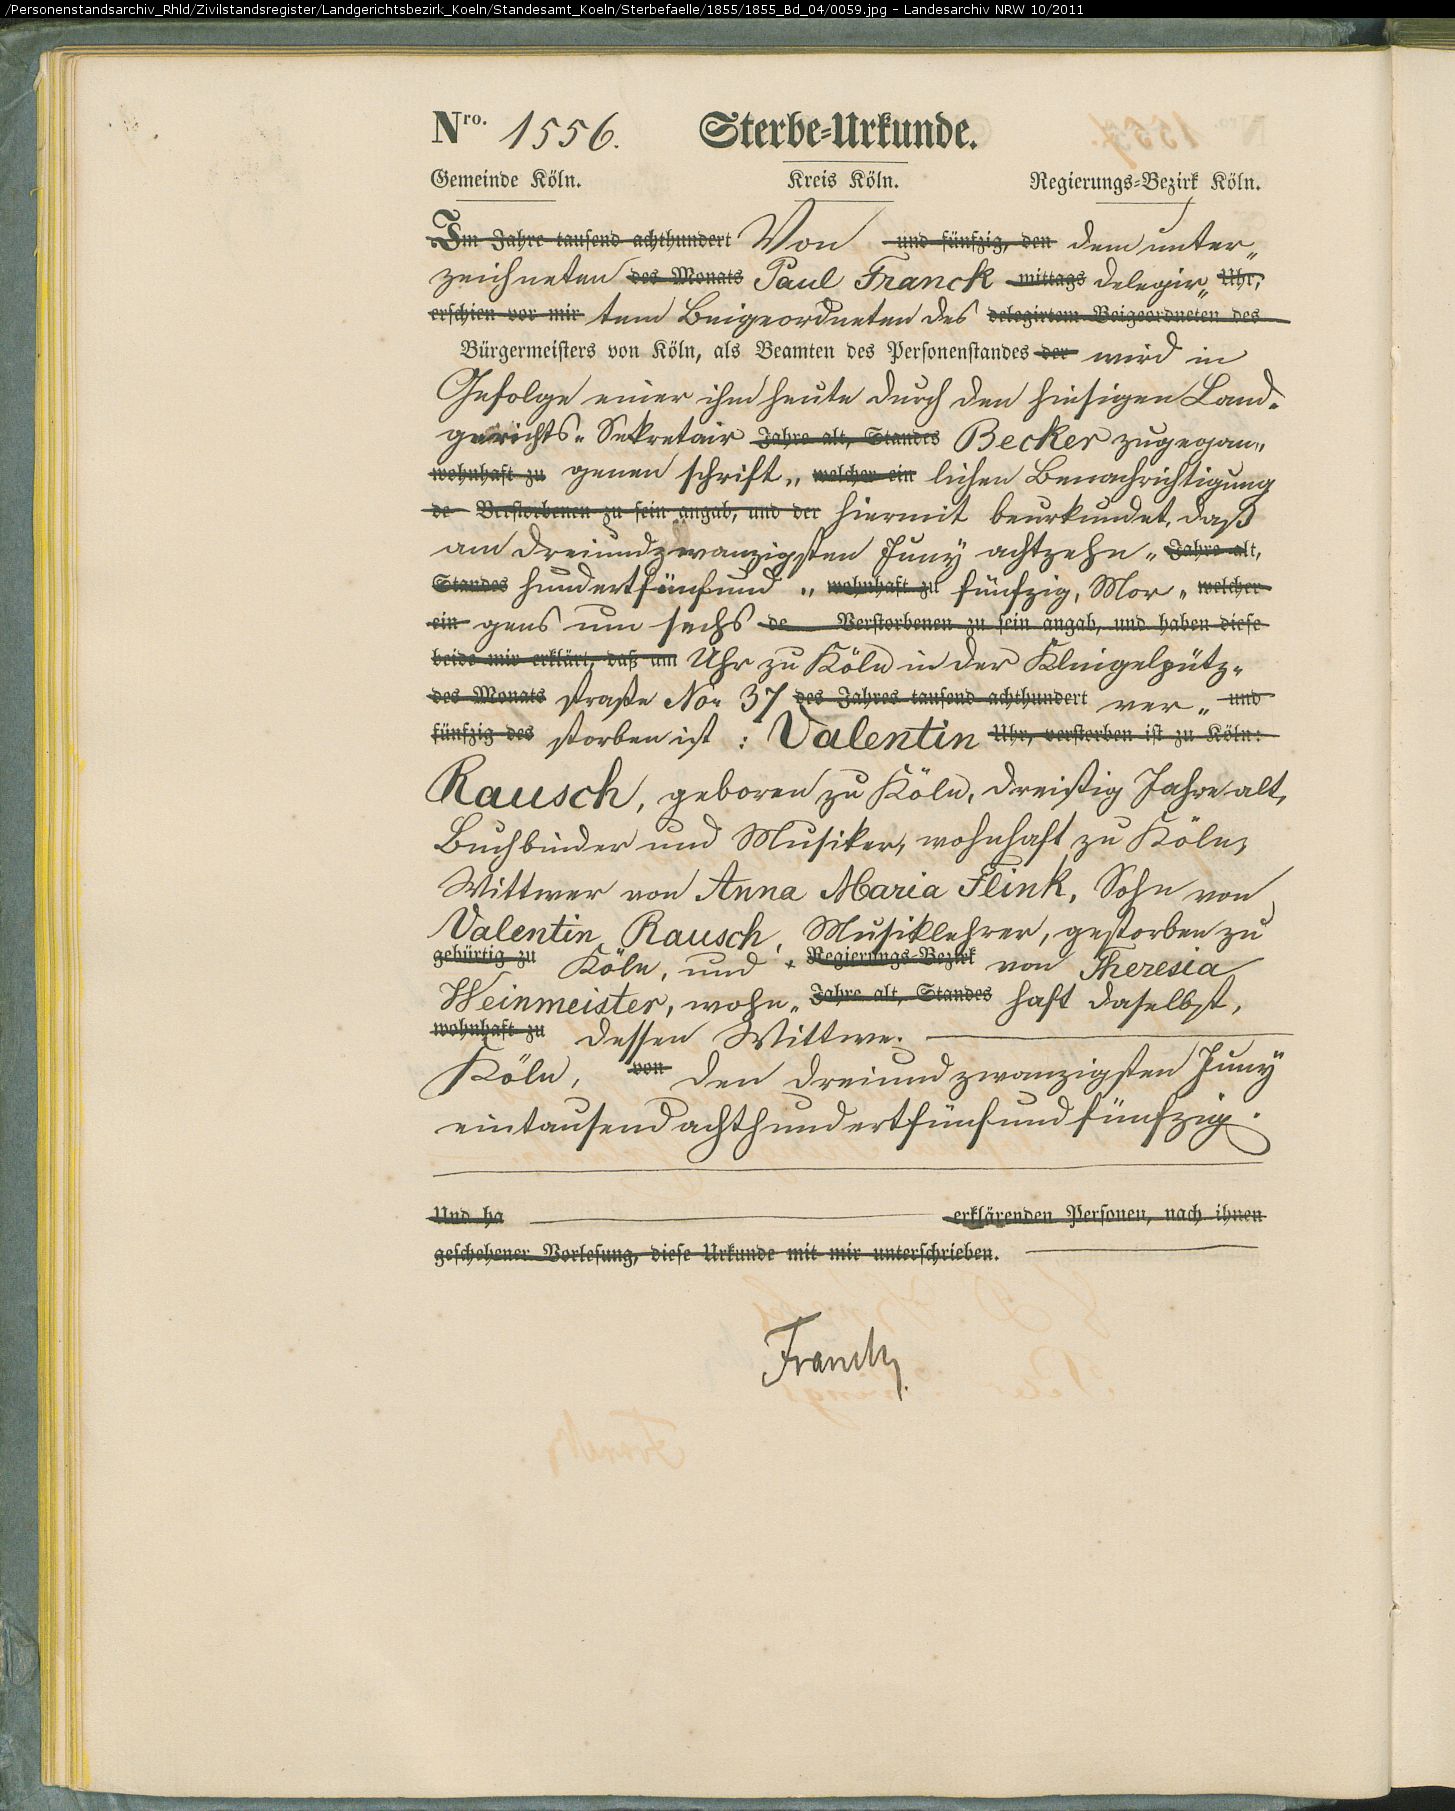 /Personenstandsarchiv_Rhld/Zivilstandsregister/Landgerichtsbezirk_Koeln/Standesamt_Koeln/Sterbefaelle/1855/1855_Bd_04/0059.jpg - Landesarchiv NRW 10/2011
Nro. 1556. Sterbe-Urkunde.
Gemeinde Köln. Kreis Köln. Regierungs-Bezirk Köln.
Im Jahre tausend achthundert Von und fünfzig, den dem unter„
zeichneten des Monats Paul Franck mittags delegir„ Uhr,
erschien vor mir tem Beigeordneten des delegirtem Beigeordneten des
Bürgermeisters von Köln, als Beamten des Personenstandes der wird in
Gefolge einer ihm heute durch den hiesigen Land-
gerichts-Sekretair Jahre alt, Standes Becker zugegan„
wohnhaft zu genen schrift„ welcher ein lichen Benachrichtigung
de Verstorbenen zu sein angab, und der hiermit beurkundet, daß
am dreiundzwanzigsten Juny achtzehn„ Jahre alt,
Standes hundertfünfund„ wohnhaft zu fünfzig, Mor„ welcher
ein gens um sechs de Verstorbenen zu sein angab, und haben diese
beide mir erklärt, daß am Uhr zu Köln in der Klingelpütz-
des Monats straße No. 37 des Jahres tausend achthundert ver„ und
fünfzig des storben ist : Valentin Uhr, verstorben ist zu Köln:
Rausch, geboren zu Köln, dreißig Jahre alt,
Buchbinder und Musiker, wohnhaft zu Köln,
Wittwer von Anna Maria Flink, Sohn von
Valentin Rausch, Musiklehrer, gestorben zu
gebürtig zu Köln, und Regierungs-Bezirk von Theresia
Weinmeister, wohn„ Jahre alt, Standes haft daselbst,
wohnhaft zu dessen Wittwe.
Köln, von den dreiundzwanzigsten Juny
eintausendachthundertfünfundfünfzig.
Und ha erklärenden Personen, nach ihnen
geschehener Vorlesung, diese Urkunde mit mir unterschrieben.
Franck